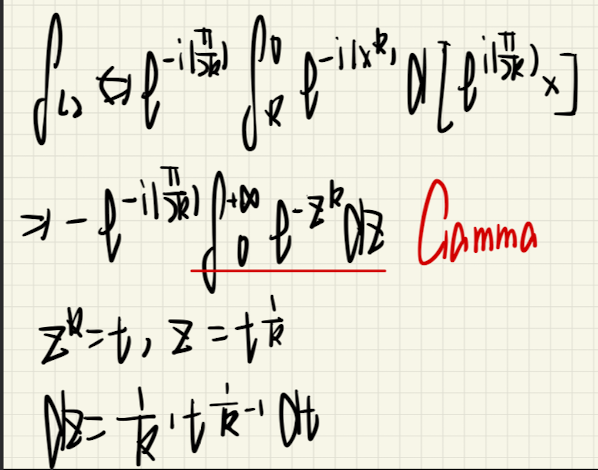 ∫_{L_2} ⇔ e^{-i(\frac{π}{2k})} ∫_R^0 e^{-i(x^k)} d[e^{i(\frac{π}{2k})} x]
⇒ -e^{-i(\frac{π}{2k})} ∫_0^{+∞} e^{-z^k} dz Gamma
z^k = t, z = t^{\frac{1}{k}}
dz = \frac{1}{k} · t^{\frac{1}{k}-1} dt